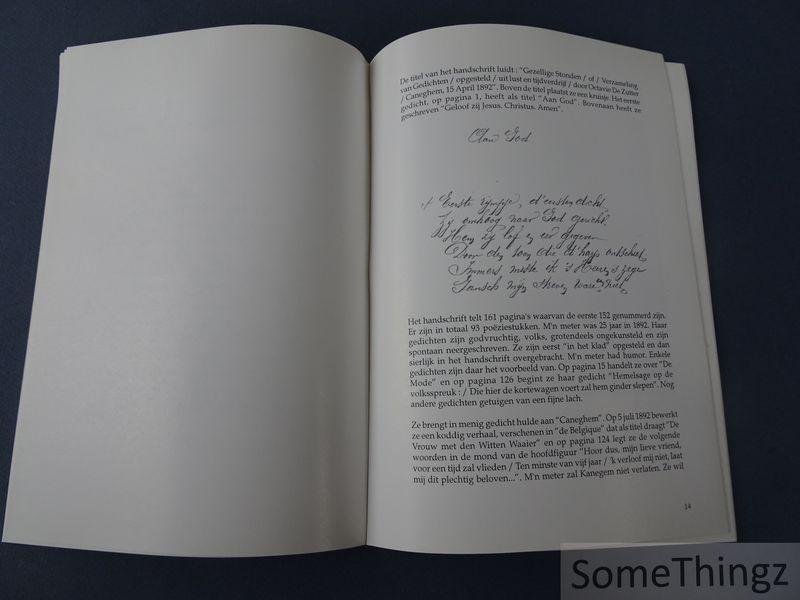 De titel van het handschrift luidt : "Gezellige Stonden / of / Verzameling
van Gedichten / opgesteld / uit lust en tijdverdrijf / door Octavie De Zutter
/ Caneghem, 15 April 1892". Boven de titel plaatst ze een kruisje. Het eerste
gedicht, op pagina 1, heeft als titel "Aan God". Bovenaan heeft ze
geschreven "Geloof zij Jesus. Christus. Amen".
Aan God.
Eerste rympje, d'eerste dicht
Zij omhoog naar God gericht.
Hem zij lof en eer gegeven
Door den toon die d'harp ontschiet,
Immers miste ik 's Heeren zegen
Gansch mijn streven ware niet
Het handschrift telt 161 pagina's waarvan de eerste 152 genummerd zijn.
Er zijn in totaal 93 poëziestukken. M'n meter was 25 jaar in 1892. Haar
gedichten zijn godvruchtig, volks, grotendeels ongekunsteld en zijn
spontaan neergeschreven. Ze zijn eerst "in het klad" opgesteld en dan
sierlijk in het handschrift overgebracht. M'n meter had humor. Enkele
gedichten zijn daar het voorbeeld van. Op pagina 15 handelt ze over "De
Mode" en op pagina 126 begint ze haar gedicht "Hemelsage op de
volksspreuk : / Die hier de kortewagen voert zal hem ginder slepen". Nog
andere gedichten getuigen van een fijne lach.
Ze brengt in menig gedicht hulde aan "Caneghem". Op 5 juli 1892 bewerkt
ze een koddig verhaal, verschenen in "de Belgique" dat als titel draagt "De
Vrouw met den Witten Waaier" en op pagina 124 legt ze de volgende
woorden in de mond van de hoofdfiguur "Hoor dus, mijn lieve vriend,
voor een tijd zal vlieden / Ten minste van vijf jaar / 'k verloof mij niet, laat
mij dit plechtig beloven...". M'n meter zal Kanegem niet verlaten. Ze wil
14
SomeThingz